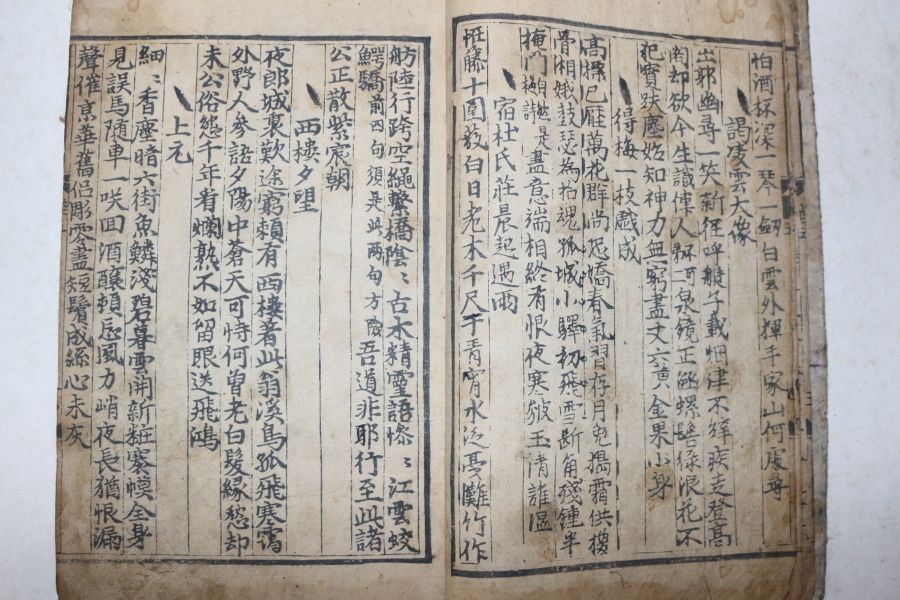 怕酒杯深一琴一劍白雲外揮手家山何處尋
謁凌雲大像
出郭幽尋一笑新徑呼艇子截烟津不辞疾走登高
閣却欲今生識偉人泉鏡正涵螺髻綠浪花不
犯寶趺塵始知神力無窮盡丈六黃金果小身
得梅一枝戲成
高標已壓萬花群尚恐嬌春氣習存月兔擣霜供換
骨湘娥鼓瑟為招魂孤城小驛初飛雪斷角殘鍾半
掩門是盡意端相終有恨夜寒皴玉倩誰温
宿杜氏莊晨起遇雨
怪藤十圍蔽白日老木千尺干青宵水泛戞灘竹作
舫陸行跨空繩繫橋陰〻古木精靈語慘〻江雲蛟
鱷驕前四句須是此两句方險吾道非耶行至此諸
公正散紫宸朝
西樓夕望
夜郎城裏歎途窮賴有西樓著此翁溪鳥孤飛寒靄
外野人參語夕陽中蒼天可恃何曾老白髮緣愁却
未公俗態千年看爛熟不如留眼送飛鴻
上元
細〻香塵暗六街魚鱗淺碧暮雲開新粧褰幙全身
見誤馬隨車一咲回酒釀頼忘風力峭夜長猶恨漏
聲催京華舊侶彫零盡短鬢成絲心未灰